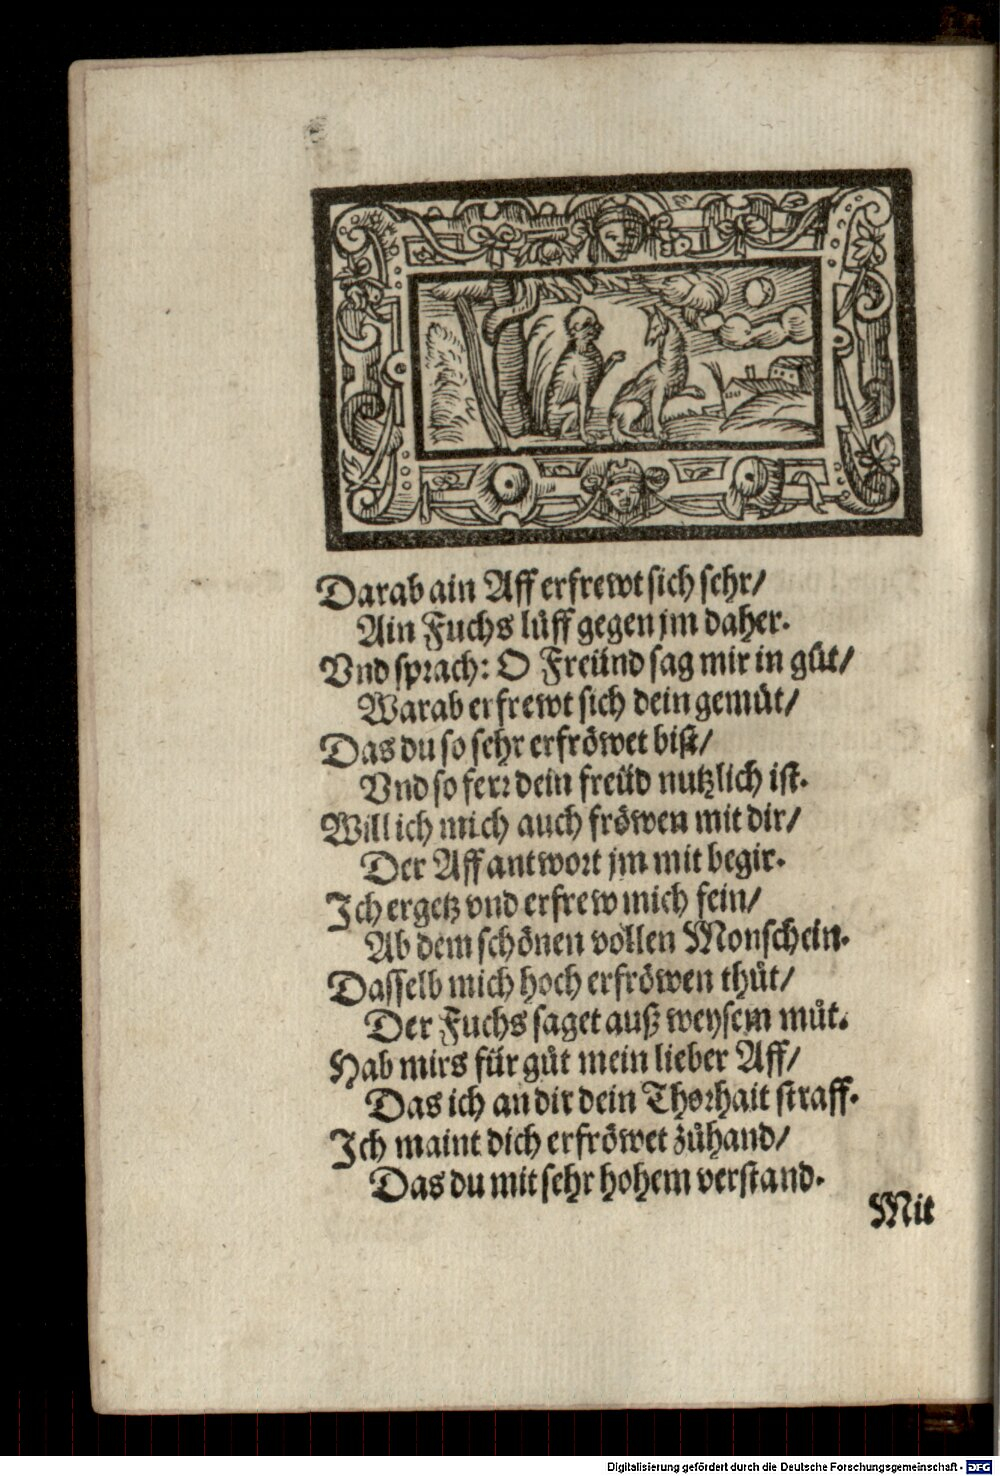 Darab ain Aff erfrewt sich sehr/
Ain Fuchs lüff gegen jm daher.
Vnd sprach: O Freünd sag mir in gůt/
Warab erfrewt sich dein gemüt/
Das du so sehr erfröwet bist/
Vnd so ferꝛ dein freüd nutzlich ist.
Will ich mich auch fröwen mit dir/
Der Aff antwort jm mit begir.
Ich ergetz vnd erfrew mich fein/
Ab dem schönen vollen Monschein.
Dasselb mich hoch erfröwen thůt/
Der Fuchs saget auß weysem můt.
Hab mirs für gůt mein lieber Aff/
Das ich an dir dein Thorhait straff.
Ich maint dich erfröwet zůhand/
Das du mit sehr hohem verstand.
Mit
Digitalisierung gefördert durch die Deutsche Forschungsgemeinschaft - DFG